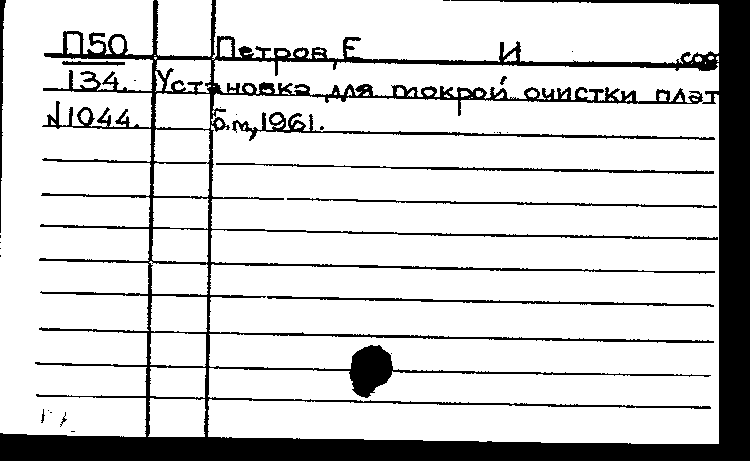 П50 Петров, Е И
134. Установка для мокрой очистки плат
N1044. б.м, 1961.